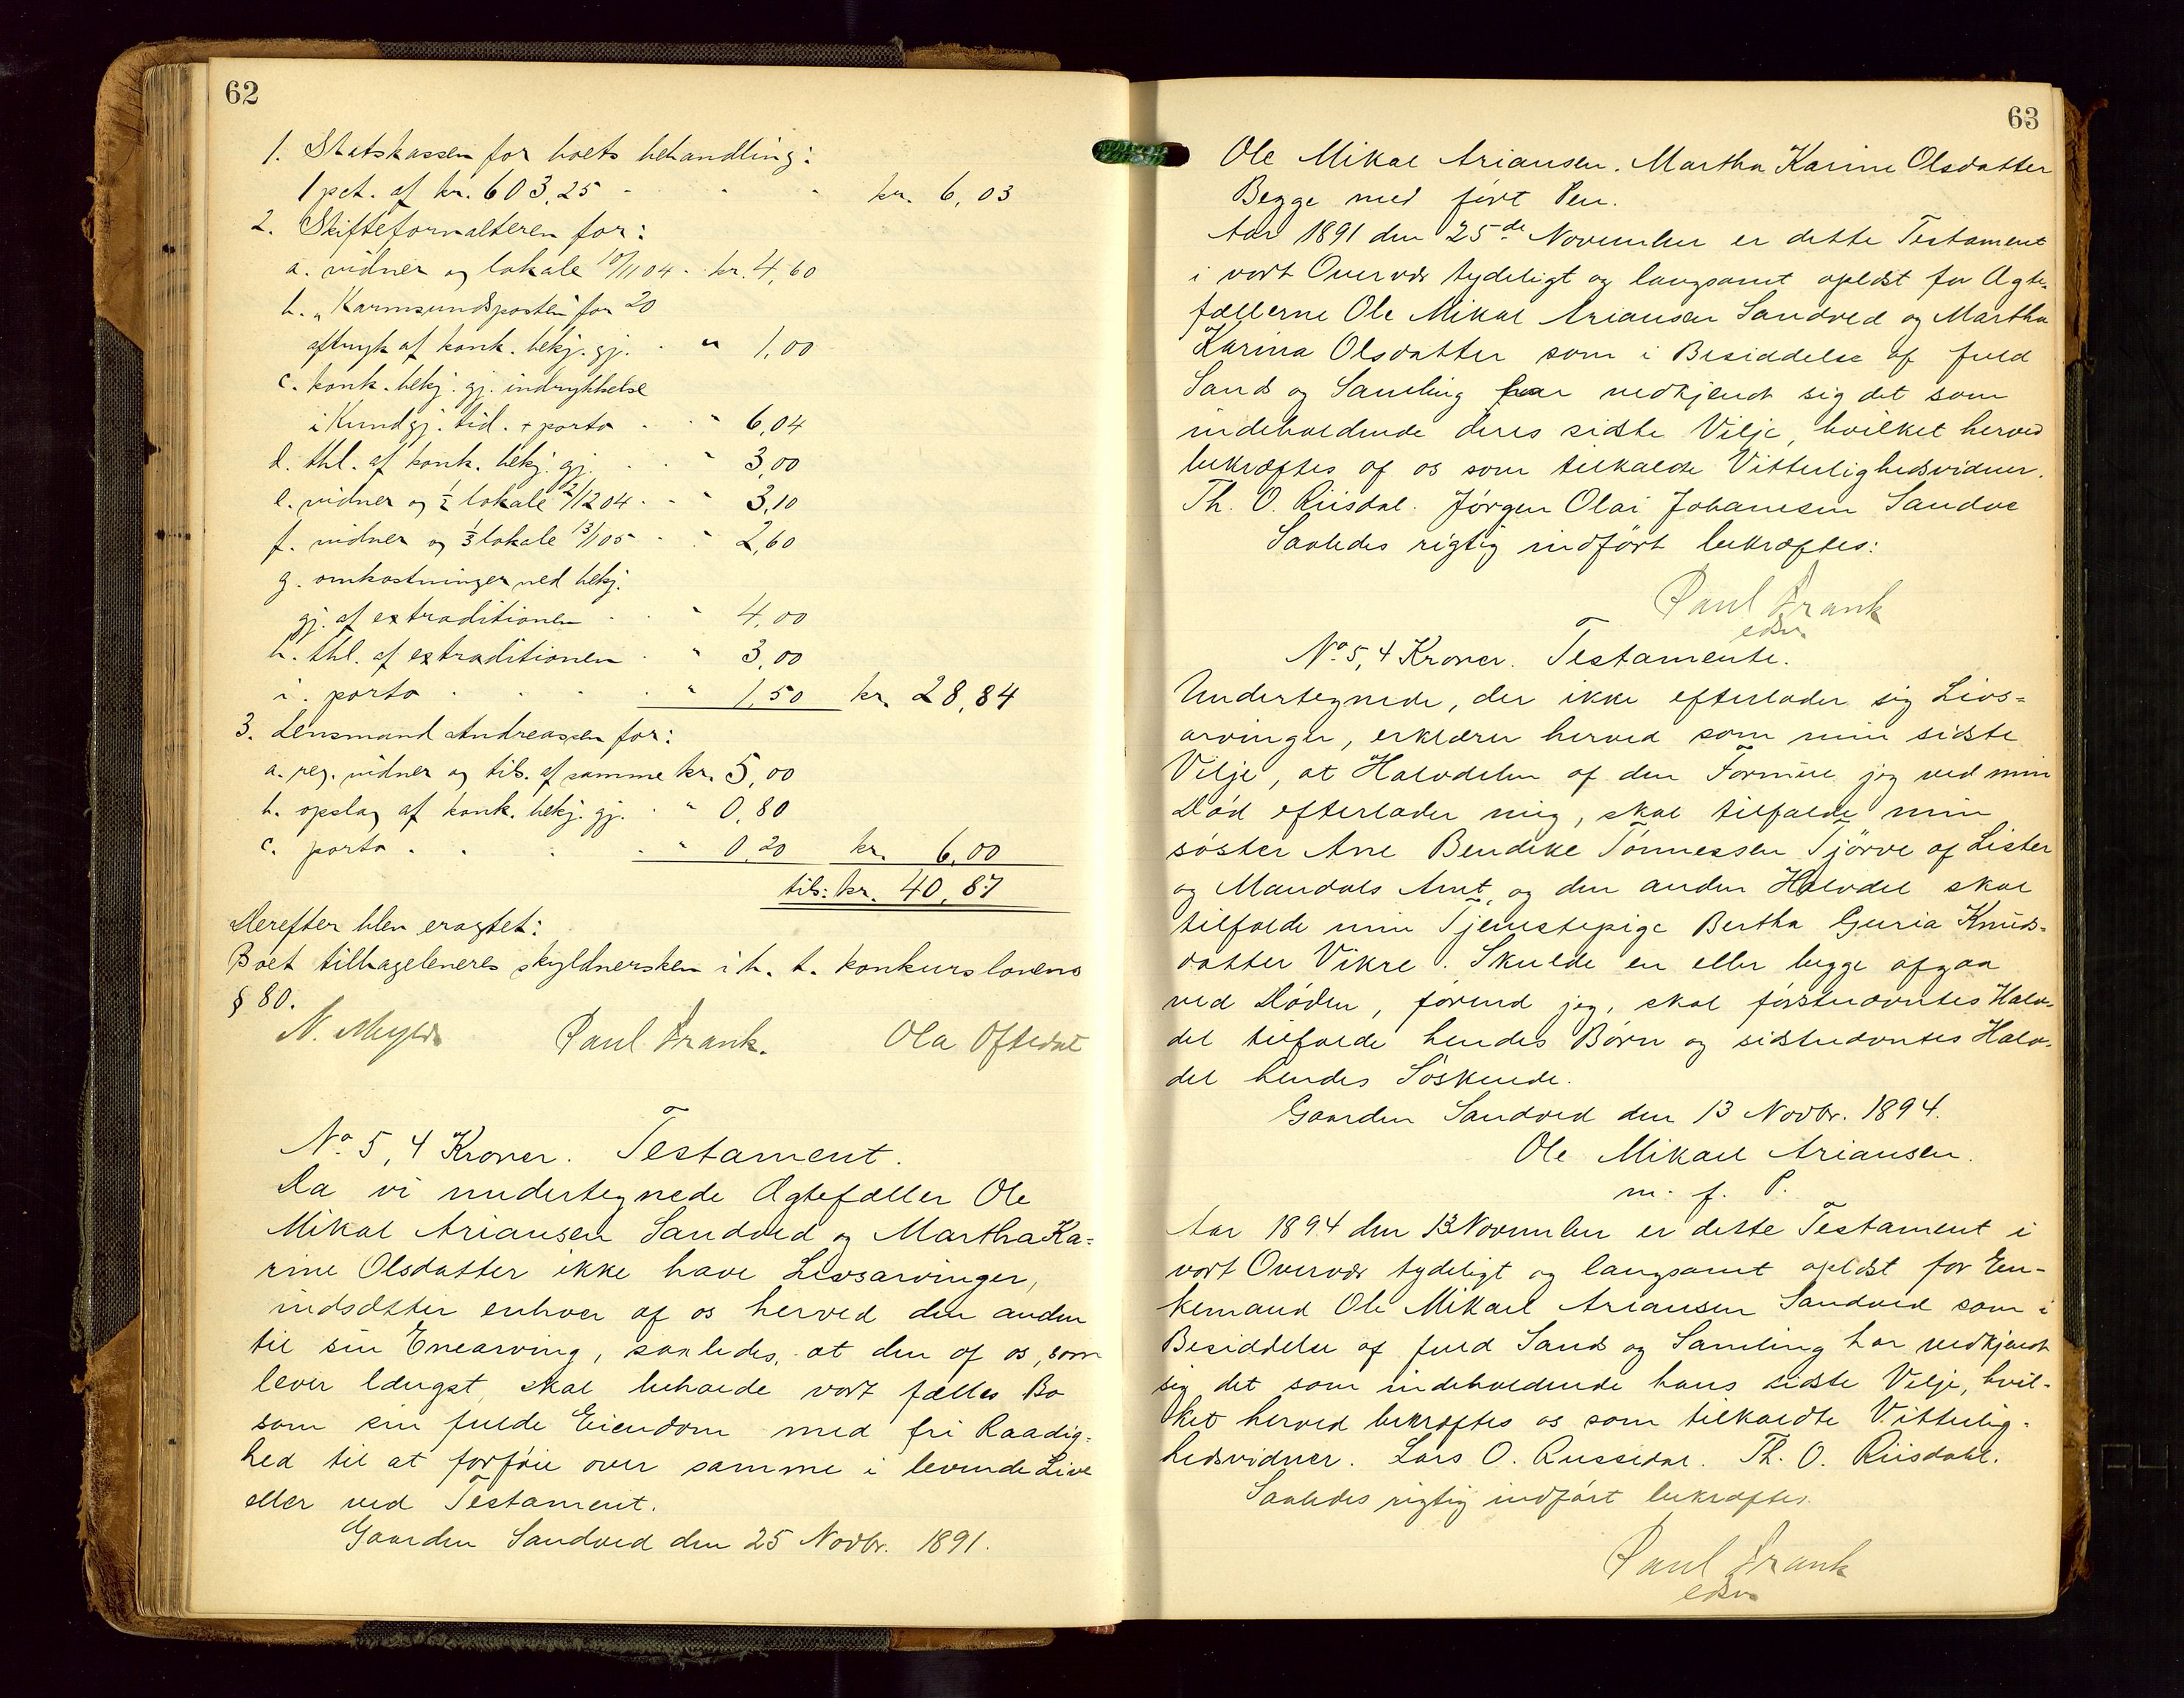 62
1. Statskassen for boets behandling:
1 pct. af kr. 603,25 - - - kr. 6,03
2. Skifteforvalteren for:
a. vidner og lokale 10/11 04 - kr. 4,60
b. „Karmsundsposten" for 20
aftryk af konk. bekj. gj. - " 1,00
c. konk. bekj. gj. indrykkelse
i Kundgj. tid. + porto - - " 6,04
d. thl. af konk. bekj. gj. - - " 3,00
e. vidner og ½ lokale 2/12 04 - - " 3,10
f. vidner og ⅓ lokale 13/1 05 - - " 2,60
g. omkostninger ved bekj.
gj. af extraditionen - - " 4,00
h. thl. af extraditionen - " 3,00
i. porto - - - - " 1,50 kr. 28,84
3. Lensmand Andreassen for:
a. reg. vidner og tils. af samme kr. 5,00
b. opslag af konk. bekj. gj. - " 0,80
c. porto - - - - " 0,20 kr. 6,00
tils: kr. 40,87
Derefter blev eragtet:
Boet tilbageleveres skyldnersken i h. t. konkurslovens
§ 80.
Paul Frank. Ola Oftedal
No 5, 4 Kroner. Testament.
Da vi undertegnede Ægtefæller Ole
Mikal Ariansen Sandved og Martha Ka=
rine Olsdatter ikke have Livsarvinger,
indsætter enhver af os herved den anden
til sin Enearving, saaledes, at den af os, som
lever længst, skal beholde vort fælles Bo
som sin fulde Eiendom med fri Raadig-
hed til at forføie over samme i levende Live
eller ved Testament.
Gaarden Sandved den 25 Novbr. 1891.
63
Ole Mikal Ariansen. Martha Karine Olsdatter
Begge med ført Pen.
Aar 1891 den 25de November er dette Testament
i vort Overvær tydeligt og langsomt oplæst for Ægte-
fællerne Ole Mikal Ariansen Sandved og Martha
Karina Olsdatter som i Besiddelse af fuld
Sands og Samling har vedkjendt sig det som
indeholdende deres sidste Vilje, hvilket herved
bekræftes af os som tilkaldte Vitterlighedsvidner.
Th. O. Riisdal. Jørgen Olai Johannesen Sandve
Saaledes rigtig indført bekræftes:
Paul Frank
edsv.
No 5, 4 Kroner. Testamente.
Undertegnede, der ikke efterlader sig Livs=
arvinger, erklærer herved som min sidste
Vilje, at Halvdelen af den Formue jeg ved min
Død efterlader mig, skal tilfalde min
søster Ane Bendike Tønnessen Tjørve af Lister
og Mandals Amt, og den anden Halvdel skal
tilfalde min Tjenestepige Bertha Guria Knuds-
datter Vikre. Skulde en eller begge afgaa
ved Døden, førend jeg, skal førstnævntes Halv-
del tilfalde hendes Børn og sidstnævntes Halv-
del hendes Søskende.
Gaarden Sandved den 13 Novbr. 1894.
Ole Mikael Ariansen.
m. f. P.
Aar 1894 den 13 November er dette Testament i
vort Overvær tydeligt og langsomt oplæst for En-
kemand Ole Mikael Ariansen Sandved som i
Besiddelse af fuld Sands og Samling har vedkjendt
sig det som indeholdende hans sidste Vilje, hvil-
ket herved bekræftes os som tilkaldte Vitterlig-
hedsvidner. Lars O. Th. O. Riisdahl.
Saaledes rigtig indført bekræftes.
Paul Frank
edsv.